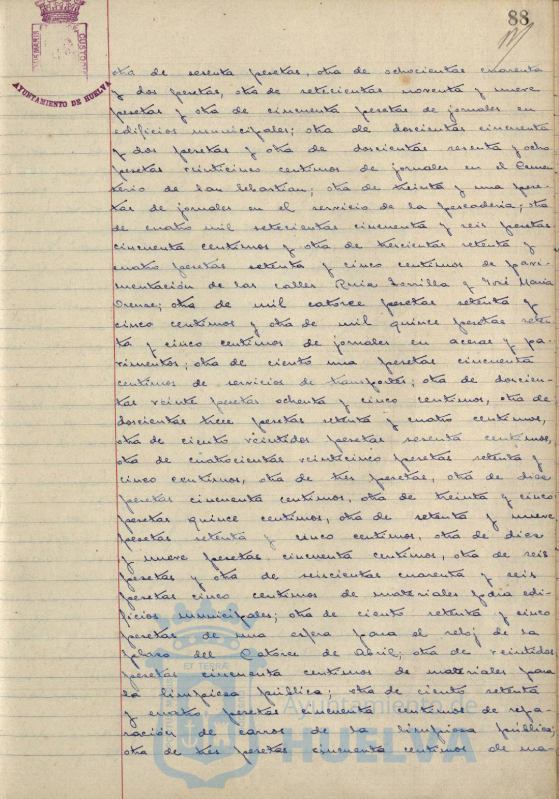 88
AYUNTAMIENTO DE HUELVA
otra de sesenta pesetas, otra de ochocientas cuarenta
y dos pesetas, otra de setecientas noventa y nueve
pesetas y otra de cincuenta pesetas de jornales en
edificios municipales; otra de doscientas cincuenta
y dos pesetas y otra de doscientas sesenta y ocho
pesetas veinticinco centimos de jornales en el Cemen-
terio de San Sebastian; otra de treinta y una pese-
tas de jornales en el servicio de la pescaderia; otra
de cuatro mil setecientas cincuenta y seis pesetas
cincuenta centimos y otra de trescientas setenta y
cuatro pesetas setenta y cinco centimos de pavi-
mentación de las calles Ruiz Zorrilla y José Maria
Orense; otra de mil catorce pesetas setenta y
cinco centimos y otra de mil quince pesetas seten-
ta y cinco centimos de jornales en aceras y pa-
vimentos; otra de ciento una pesetas cincuenta
centimos de servicios de transportes; otra de doscien-
tas veinte pesetas ochenta y cinco centimos, otra de
doscientas trece pesetas setenta y cuatro centimos,
otra de ciento veintidos pesetas sesenta centimos,
otra de cuatrocientas veinticinco pesetas setenta y
cinco centimos, otra de tres pesetas, otra de diez
pesetas cincuenta centimos, otra de treinta y cinco
pesetas quince centimos, otra de setenta y nueve
pesetas setenta y cinco centimos, otra de diez
y nueve pesetas cincuenta centimos, otra de seis
pesetas y otra de seiscientas cuarenta y seis
pesetas cinco centimos de materiales para edi-
ficios municipales; otra de ciento setenta y cinco
pesetas de una esfera para el reloj de la
plaza del Catorce de Abril; otra de veintidos
pesetas cincuenta centimos de materiales para
la limpieza pública; otra de ciento setenta
y cuatro pesetas cincuenta centimos de repa-
ración de carros de la limpieza pública;
otra de tres pesetas cincuenta centimos de ma-
ET TERRÆ
Ayuntamiento de
HUELVA